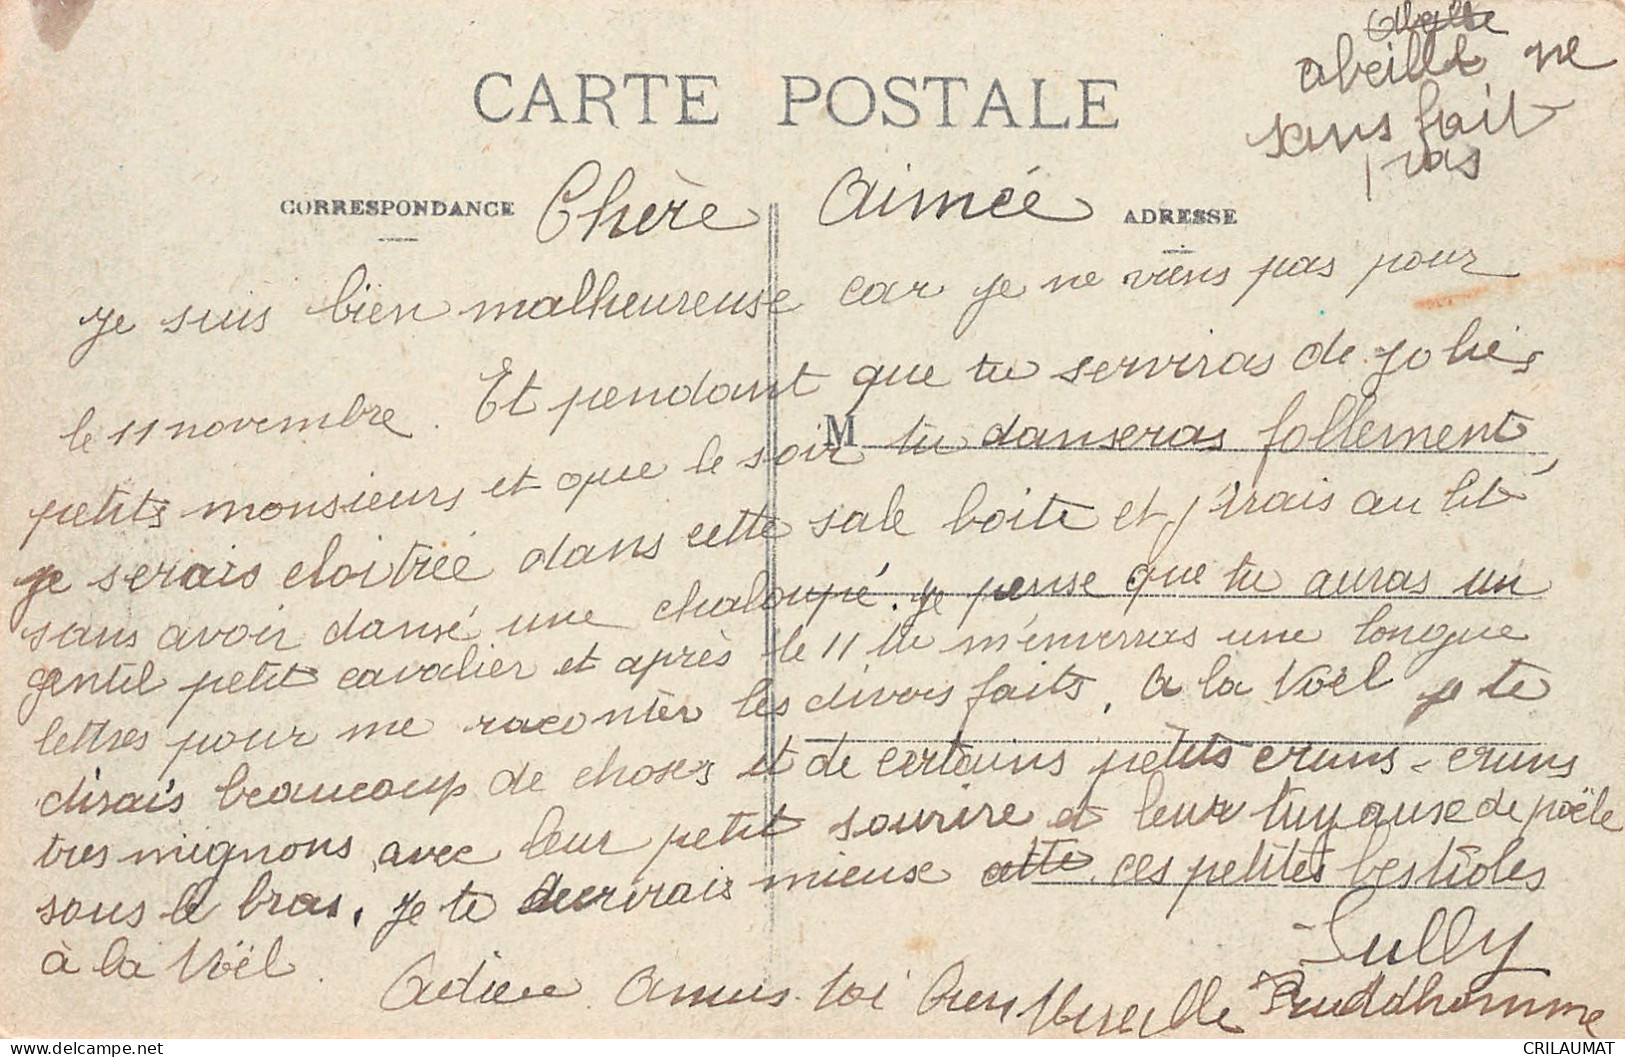 abeille ne
sans fait
pas
CARTE POSTALE
CORRESPONDANCE
ADRESSE
Chère Aimée
Je suis bien malheureuse car je ne viens pas pour
le 11 novembre. Et pendant que tu serviras de jolies
M
petits monsieurs et que le soir tu danseras follement
je serais cloitrée dans cette sale boite et j'irais au lit
sans avoir dansé une chaloupé. Je pense que tu auras un
gentil petit cavalier et après le 11 tu m'enverras une longue
lettres pour me raconter les divers faits. A la Noël je te
disais beaucoup de choses et de certains petits cruns-cruns
tres mignons avec leur petit sourire et leur tuyause de poële
sous le bras. Je te decrirais mieuse ces petites bestioles
à la Noël.
Adieu. Amus-toi bien Mireille
Sully
Pruddhomme
CRILAUMAT